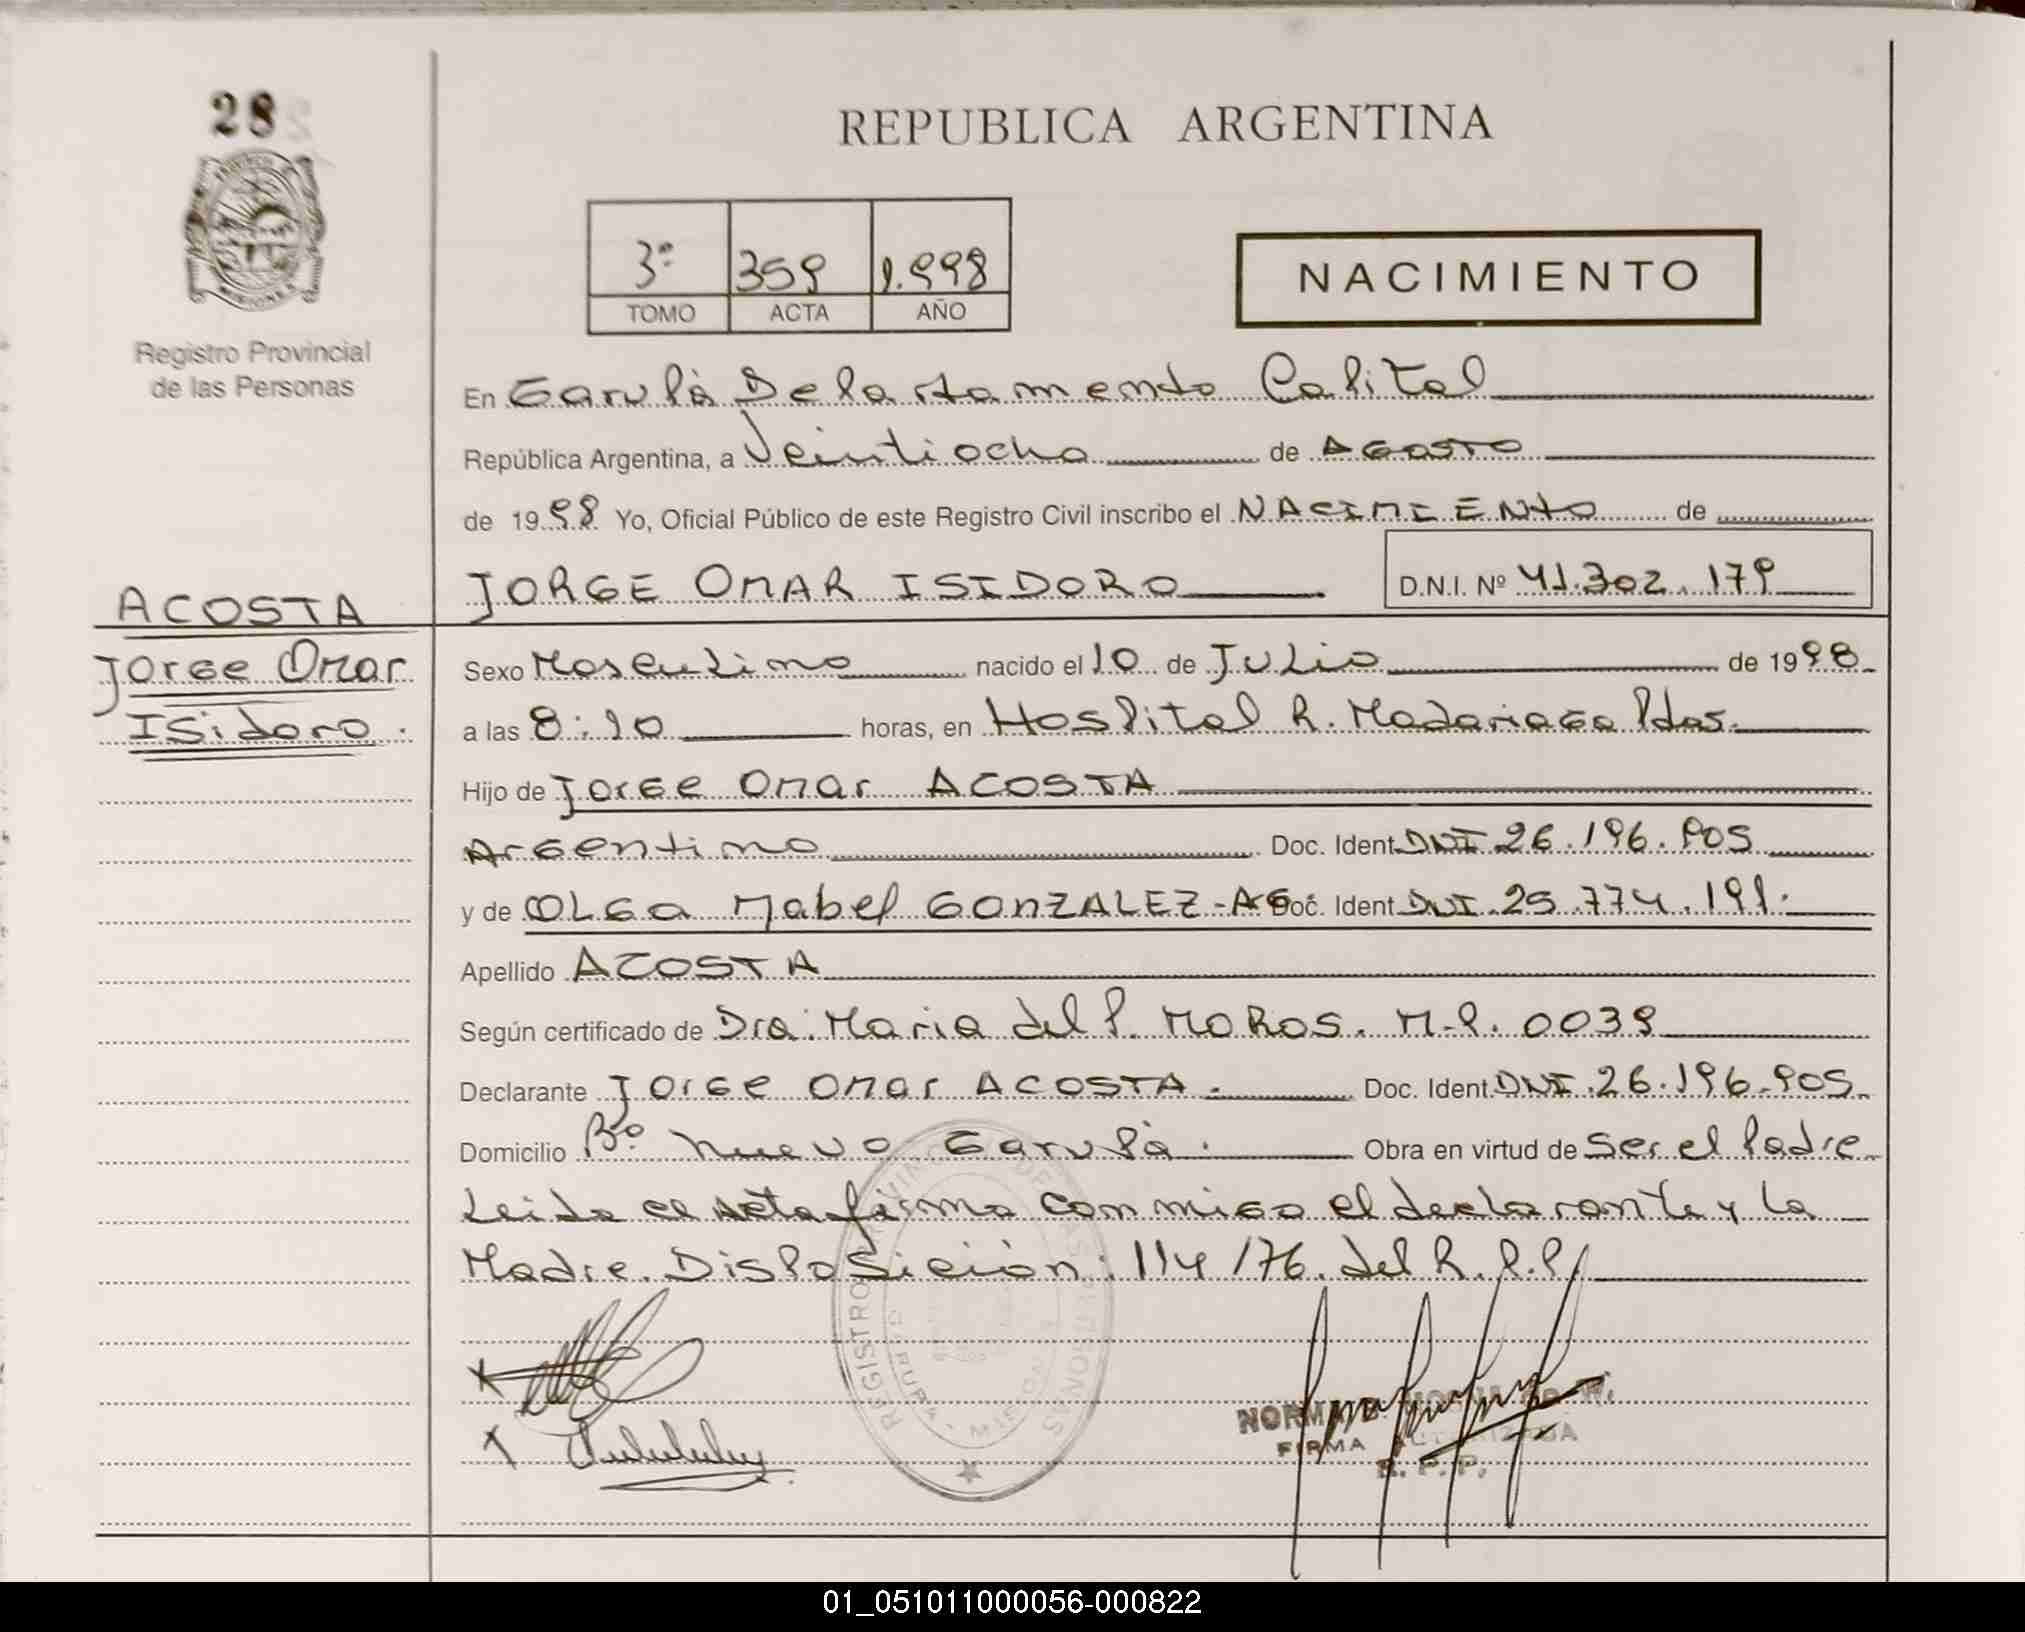 28
REPUBLICA ARGENTINA
3º 359 1.998
TOMO ACTA AÑO
NACIMIENTO
Registro Provincial
de las Personas
En Garupá Departamento Capital
República Argentina, a Veintiocho de Agosto
de 1998 Yo, Oficial Público de este Registro Civil inscribo el NACIMIENTO de
JORGE OMAR ISIDORO D.N.I. Nº 41.302.179
ACOSTA
Jorge Omar
Isidoro.
Sexo Masculino nacido el 10 de Julio de 1998
a las 8:10 horas, en Hospital R. Madariaga Pdas.
Hijo de Jorge Omar ACOSTA
Argentino Doc. Ident. DNI 26.196.905
y de OLGA Mabel GONZALEZ-AG Doc. Ident. DNI 25.774.191.
Apellido ACOSTA
Según certificado de Dra. Maria del P. MOROS. M.P. 0039
Declarante Jorge Omar ACOSTA. Doc. Ident. DNI 26.196.905.
Domicilio Bº Nuevo Garupá. Obra en virtud de Ser el Padre
Leida el acta firma conmigo el declarante y la
Madre. Disposición: 114/76. del R.P.P.
REGISTRO PROVINCIAL DE LAS PERSONAS
GARUPA - MISIONES
FIRMA AUTORIZADA
R. P. P.
01_051011000056-000822